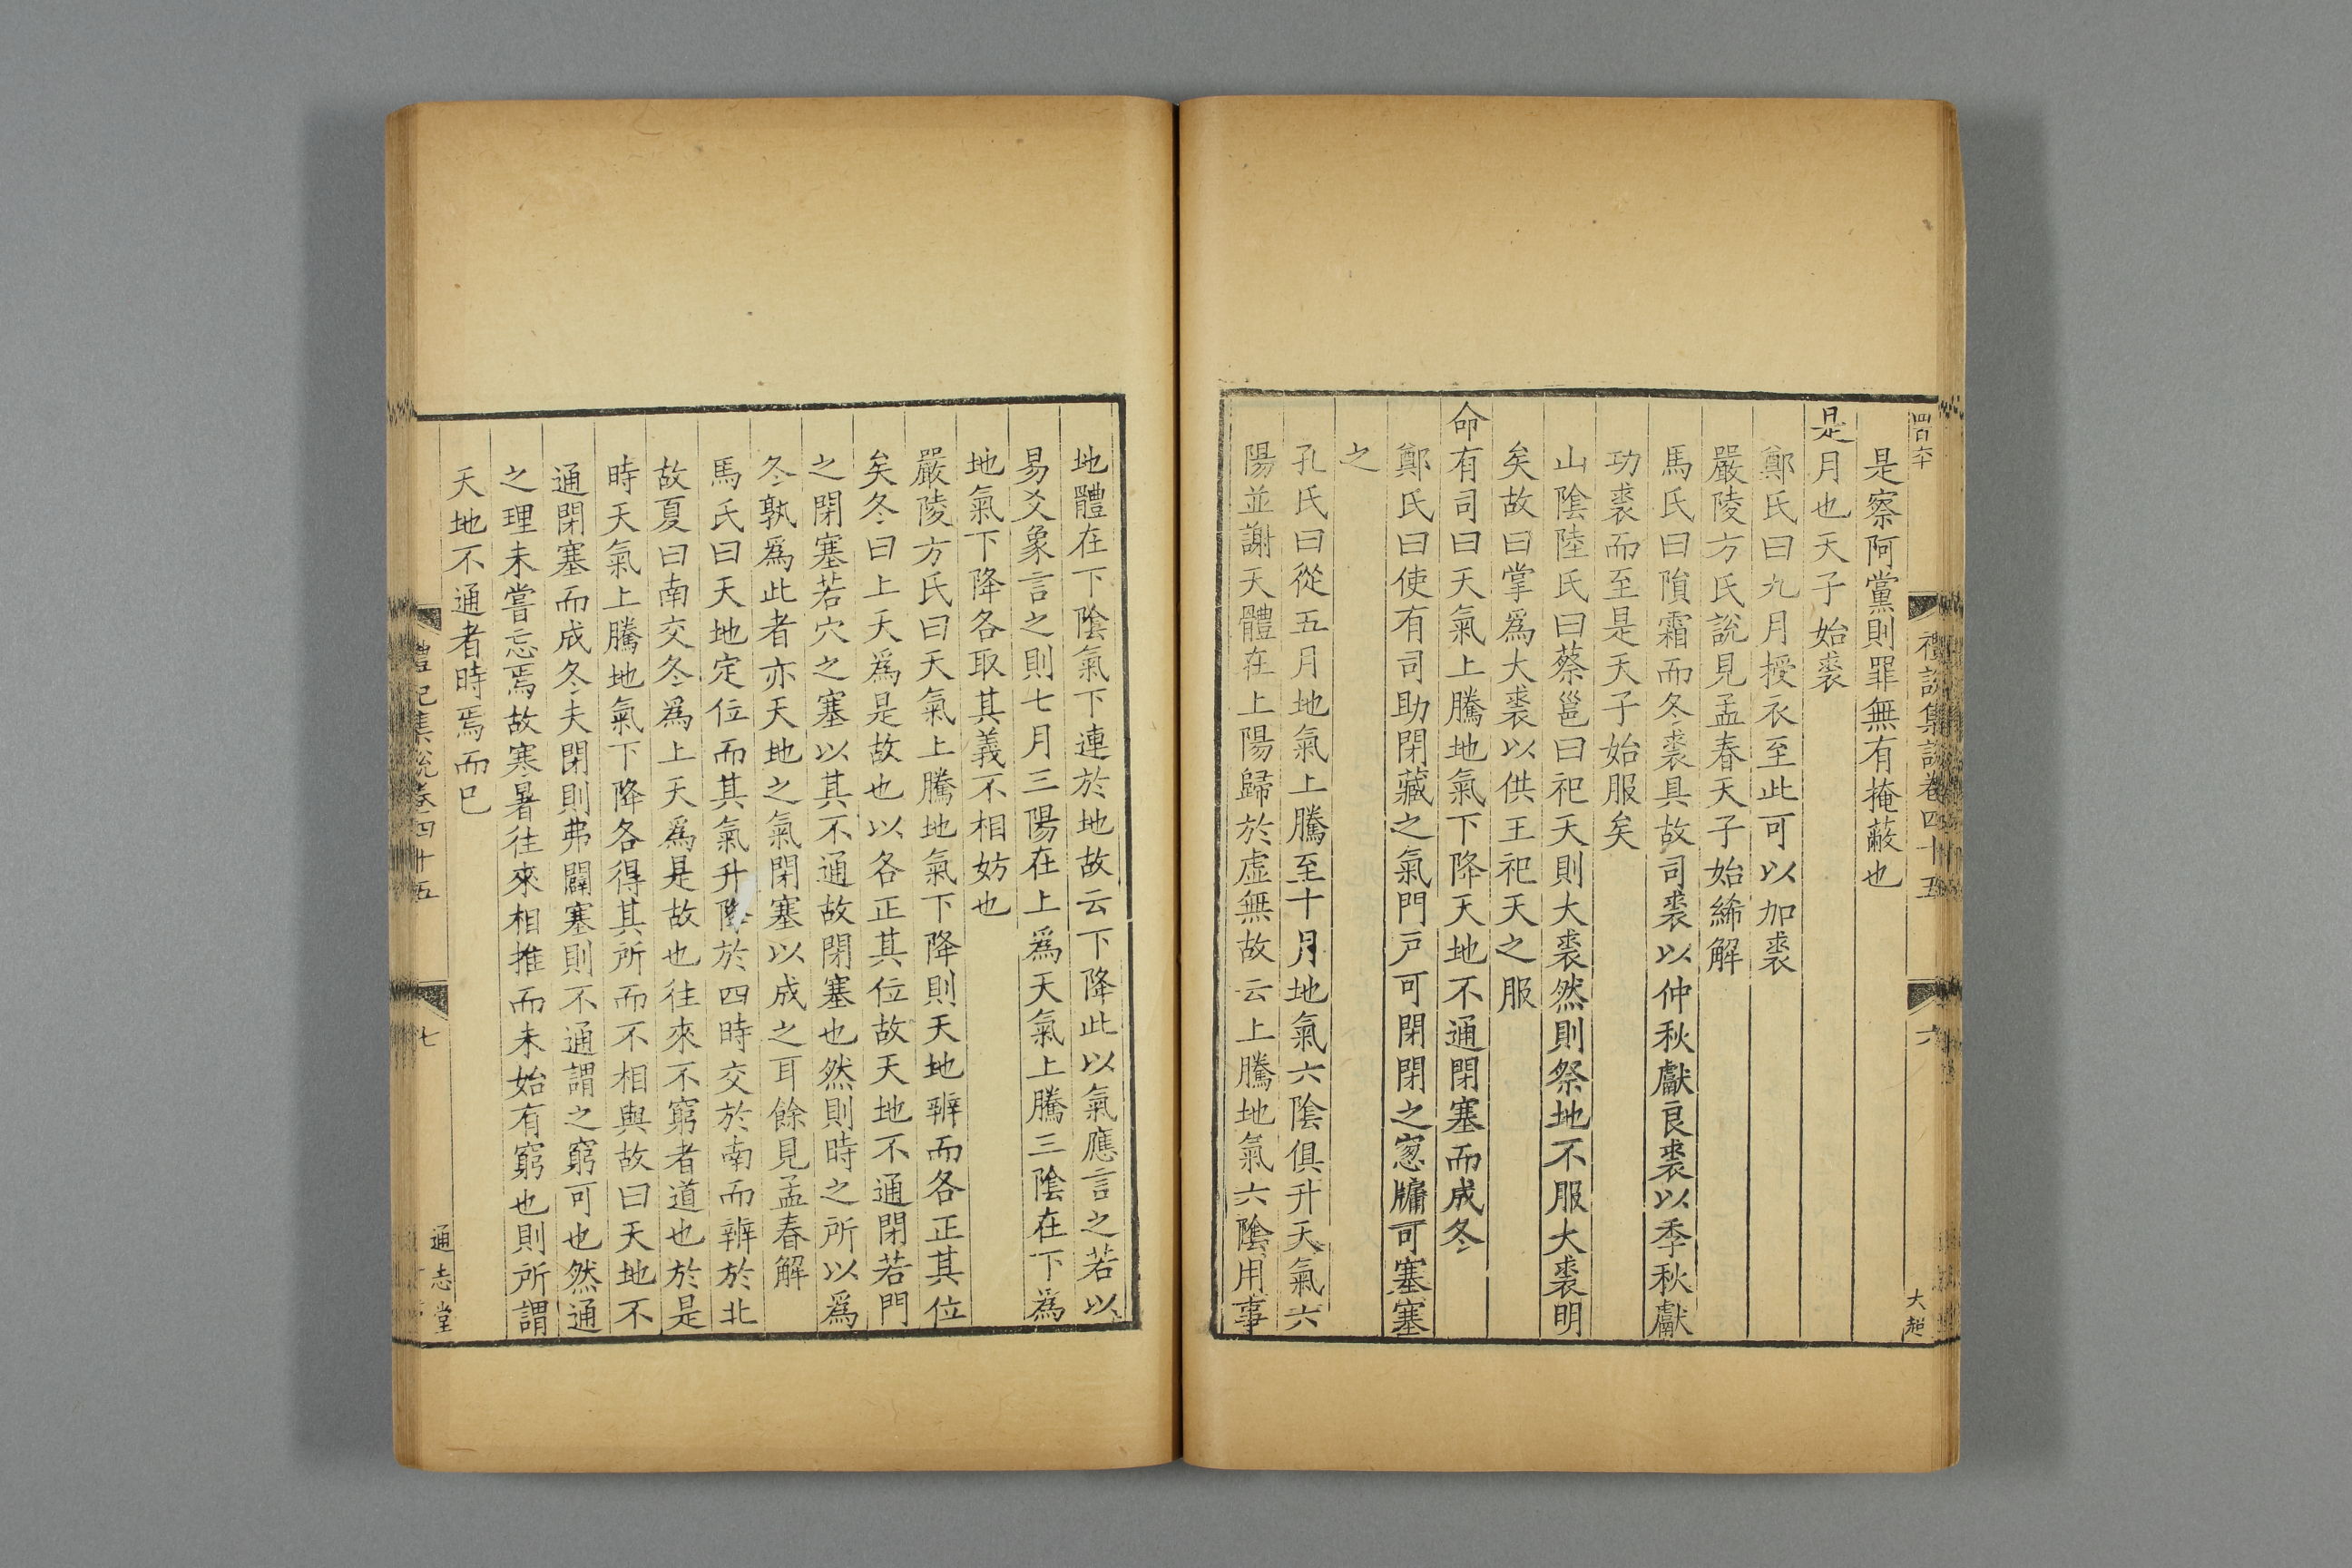 四百六十
禮記集說卷四十五
六
大超
是察阿黨則罪無有掩蔽也
是月也天子始裘
鄭氏曰九月授衣至此可以加裘
嚴陵方氏說見孟春天子始絺解
馬氏曰隕霜而冬裘具故司裘以仲秋獻良裘以季秋獻
功裘而至是天子始服矣
山陰陸氏曰蔡邕曰祀天則大裘然則祭地不服大裘明
矣故曰掌爲大裘以供王祀天之服
命有司曰天氣上騰地氣下降天地不通閉塞而成冬
鄭氏曰使有司助閉藏之氣門戸可閉閉之窻牖可塞塞
之
孔氏曰從五月地氣上騰至十月地氣六陰俱升天氣六
陽並謝天體在上陽歸於虛無故云上騰地氣六陰用事
地體在下陰氣下連於地故云下降此以氣應言之若以
易爻象言之則七月三陽在上爲天氣上騰三陰在下爲
地氣下降各取其義不相妨也
嚴陵方氏曰天氣上騰地氣下降則天地辨而各正其位
矣冬曰上天爲是故也以各正其位故天地不通閉若門
之閉塞若穴之塞以其不通故閉塞也然則時之所以爲
冬孰爲此者亦天地之氣閉塞以成之耳餘見孟春解
馬氏曰天地定位而其氣升降於四時交於南而辨於北
故夏曰南交冬爲上天爲是故也往來不窮者道也於是
時天氣上騰地氣下降各得其所而不相與故曰天地不
通閉塞而成冬夫閉則弗闢塞則不通謂之窮可也然通
之理未嘗忘焉故寒暑往來相推而未始有窮也則所謂
天地不通者時焉而已
禮記集說卷四十五
七
通志堂